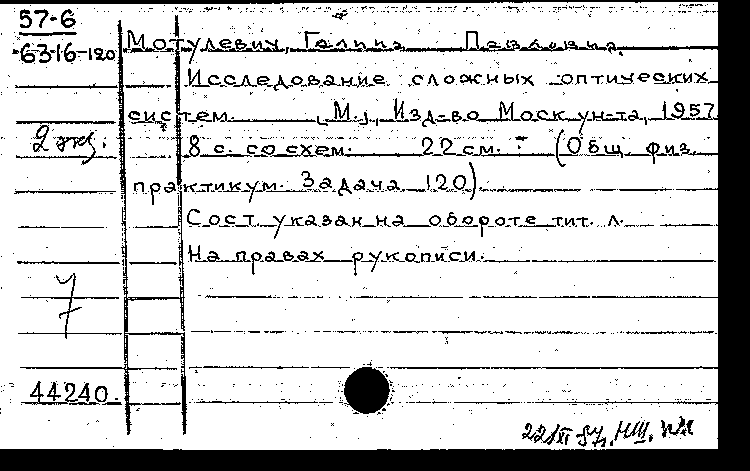 57-6
63-16-120
Мотулевич, Галина Павловна.
Исследование сложных оптических
систем. [М.], Изд-во Моск. ун-та, 1957
2 экз.
8 с. со схем. 22 см. - (Общ. физ.
практикум. Задача 120).
Сост. указан на обороте тит. л.
На правах рукописи.
7
44240.
22/XI 57,